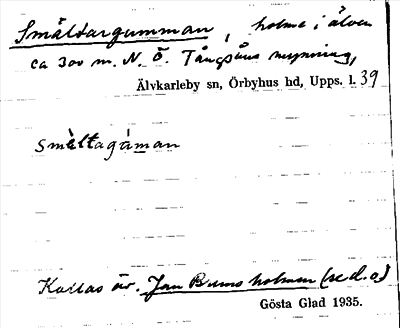 Smältargumman, holme i älven
ca 300 m. N. Ö. Tångsåns mynning,
Älvkarleby sn, Örbyhus hd, Upps. l. 39
smàltagáman
Kallas äv. Jan Burns holmen (se d. o)
Gösta Glad 1935.